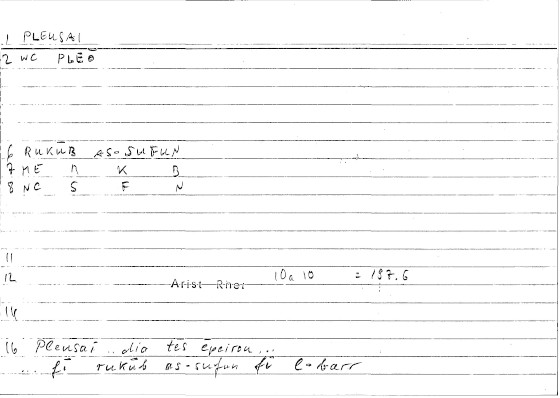 1 PLEUSAI
2 WC PLEŌ
6 RUKŪB AS-SUFUN
7 ME R K B
8 NC S F N
11
12 Arist Rhet 10a 10 = 197.6
14
16 Pleusai .. dia tēs ēpeirou...
... fī rukūb as-sufun fī l-barr